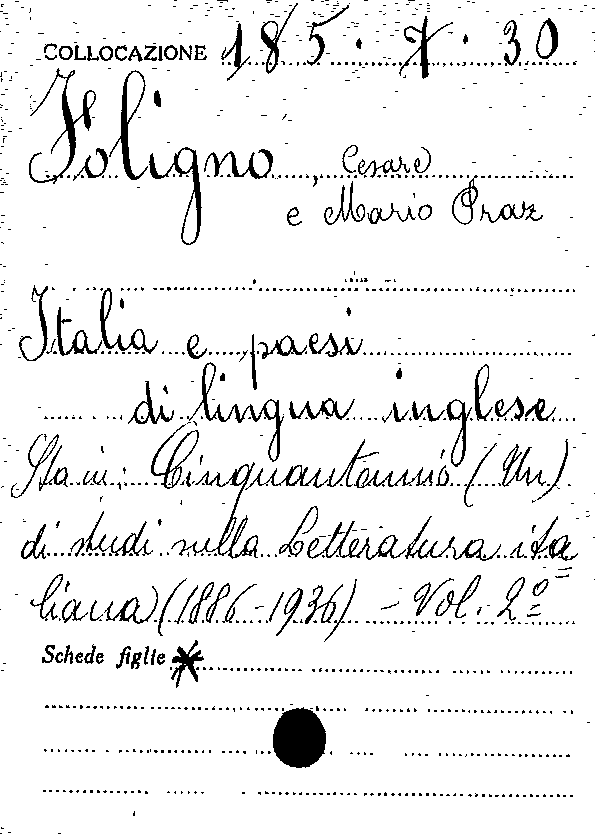 COLLOCAZIONE 185. 7. 30
Foligno, Cesare
e Mario Praz
Italia e paesi
di lingua inglese
Sta in: Cinquantennio (Un)
di studi sulla Letteratura ita=
liana (1886-1936) - Vol. 2º
Schede figlie *